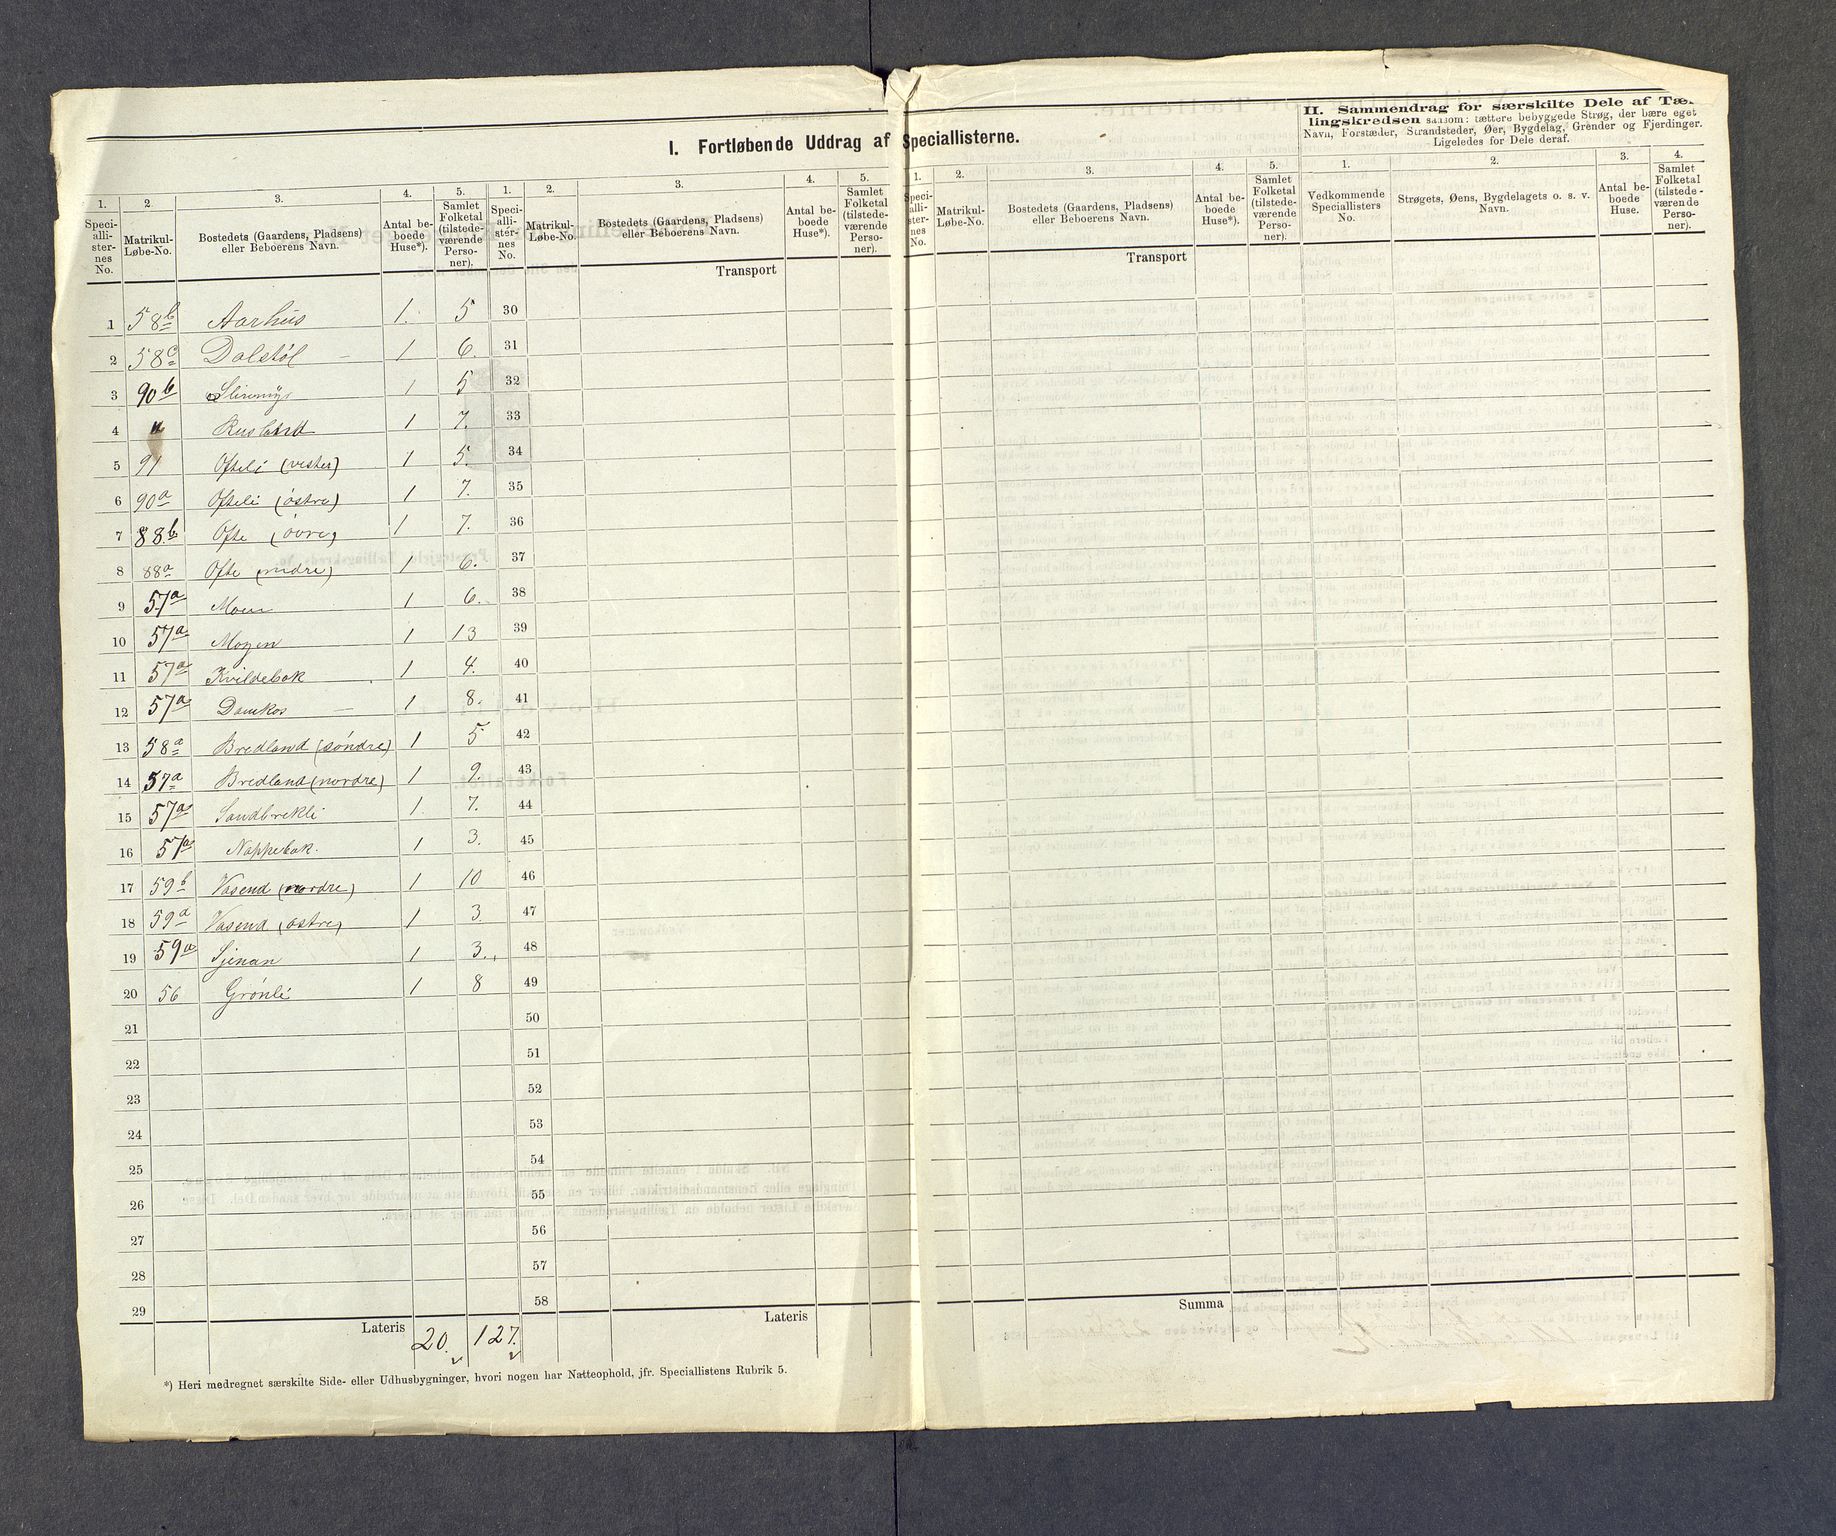 I. Fortløbende Uddrag af Speciallisterne.
II. Sammendrag for særskilte Dele af Tæl-
lingskredsen saasom: tættere bebyggede Strøg, der bære eget
Navn, Forstæder, Strandsteder, Øer, Bygdelag, Grender og Fjerdinger.
Ligeledes for Dele deraf.
1. 2. 3. 4. 5. 1. 2. 3. 4. 5. 1. 2. 3. 4. 5. 1. 2. 3. 4.
Speciallisternes No. Matrikul-Løbe-No. Bostedets (Gaardens, Pladsens) eller Beboerens Navn. Antal beboede Huse*). Samlet Folketal (tilstedeværende Personer).
Speciallisternes No. Matrikul-Løbe-No. Bostedets (Gaardens, Pladsens) eller Beboerens Navn. Antal beboede Huse*). Samlet Folketal (tilstedeværende Personer).
Speciallisternes No. Matrikul-Løbe-No. Bostedets (Gaardens, Pladsens) eller Beboerens Navn. Antal beboede Huse*). Samlet Folketal (tilstedeværende Personer).
Vedkommende Speciallisters No. Strøgets, Øens, Bygdelagets o. s. v. Navn. Antal beboede Huse. Samlet Folketal (tilstedeværende Personer).
Transport Transport
1 58b Aarhus 1. 5 30
2 58c Dalstøl 1 6. 31
3 90b 1 5 32
4 " Rusland 1 7. 33
5 91 Ofteli (vestre) 1 5. 34
6 90a Ofteli (östre) 1 7. 35
7 88b Ofte (övre) 1 7. 36
8 88a Ofte (nidre) 1 6. 37
9 57a Moen 1 6. 38
10 57a Mogen 1 13 39
11 57a Kvildebak 1 4. 40
12 57a Damkos 1 8. 41
13 58a Bredland (söndre) 1 5 42
14 57a Bredland (nordre) 1 9. 43
15 57a Sandbrekli 1. 7. 44
16 57a Nappebak. 1 3. 45
17 59b Vasend (nordre) 1 10 46
18 59a Vasend (østre) 1 3. 47
19 59a Sjenan 1 3. 48
20 56 Grönli 1 8 49
21 50
22 51
23 52
24 53
25 54
26 55
27 56
28 57
29 58
Lateris 20. 127. Lateris Summa
*) Heri medregnet særskilte Side- eller Udhusbygninger, hvori nogen har Natteophold, jfr. Speciallistens Rubrik 5.